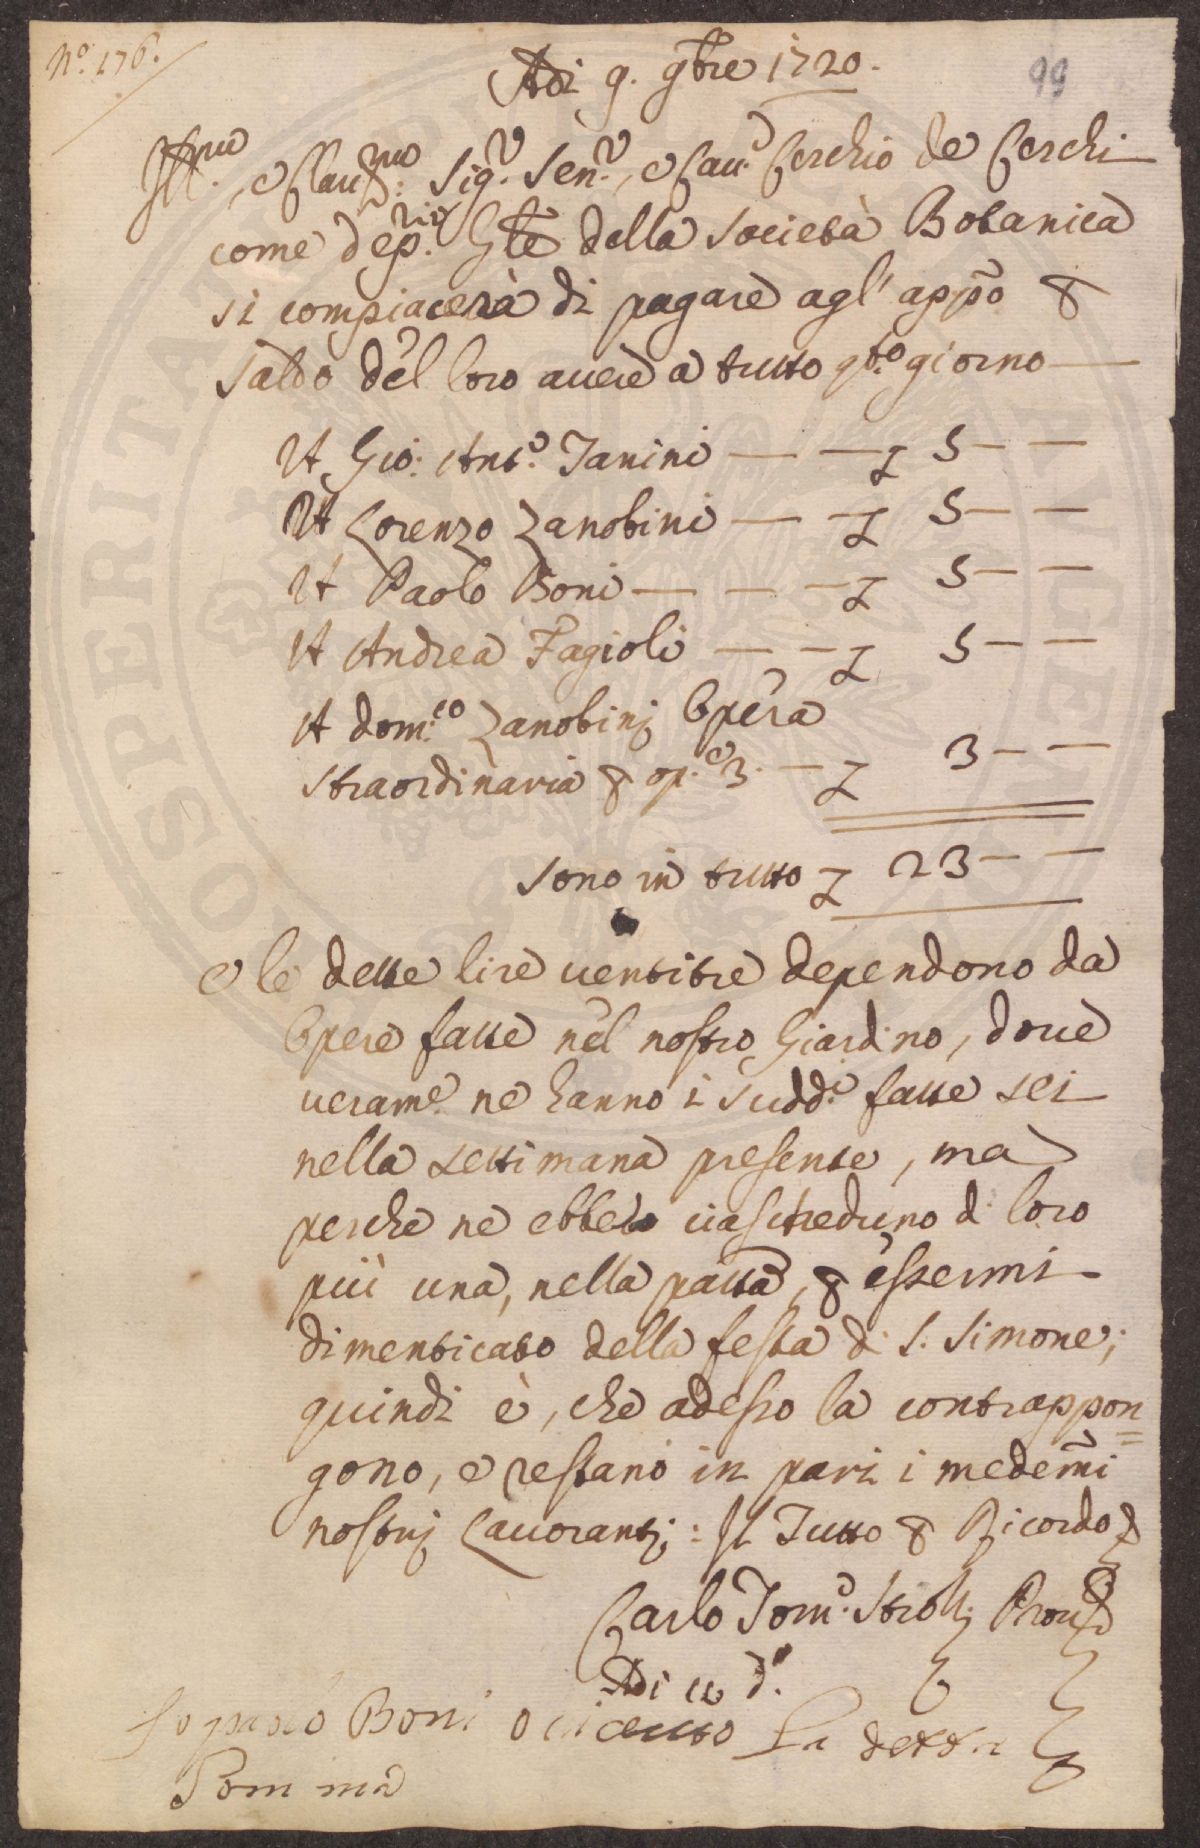 N.º 176.
Adi 9. 9bre 1720.
99
Ill.mo, e Clariss.mo Sig.r Sen.r, e Cau.e Cerchio de Cerchi
come dep.rio Gle della Società Botanica
si compiacerà di pagare agl' appõ p
saldo del loro auere a tutto qto. giorno
A Gio: Ant.o Janini — — £ 5 — —
A Lorenzo Zanobini — — £ 5 — —
A Paolo Boni — — — £ 5 — —
A Andrea Fagioli — — £ 5 — —
A dom.co Zanobinj Opera
straordinaria p op.e 3. — £ 3 — —
sono in tutto £ 23 — —
e le dette lire uentitre dependono da
Opere fatte nel nostro Giardino, doue
uerame. ne hanno i sudd.i fatte sei
nella settimana presente, ma
perche ne ebbero ciascheduno di loro
più una, nella passa, p essermi
dimenticato della festa di S. Simone;
quindi è, che adesso la contrappon=
gono, e restano in pari i medemi
nostrj Lauorantj: Il Tutto p Ricordo
Carlo Tom.o Strozzj Prou.re
Adi d.o
Io paolo Boni o riceuto La detta
Somma